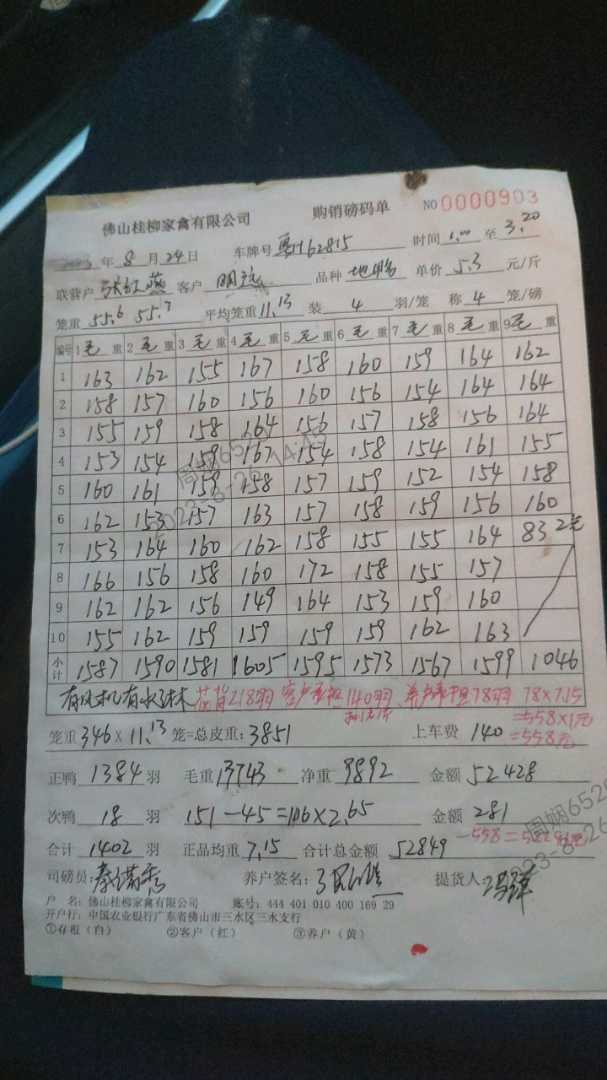 佛山桂柳家禽有限公司 购销磅码单 NO 0000903
2023年8月24日 车牌号 粤162815 时间 1.00 至 3.20
联营户 张红燕 客户 品种 地鸭 单价 5.3 元/斤
笼重 55.6 55.7 平均笼重 11.13 装 4 羽/笼 称 4 笼/磅
编号 1毛重 2毛重 3毛重 4毛重 5毛重 6毛重 7毛重 8毛重 9毛重
1 163 162 155 167 158 160 159 164 162
2 158 157 160 156 160 156 154 164 164
3 155 159 158 164 156 157 158 156 164
4 153 154 159 167 154 158 154 161 155
5 160 161 159 158 157 159 152 154 158
6 162 153 157 163 157 158 159 156 160
7 153 164 160 162 158 155 155 164 83 2毛
8 166 156 158 160 172 158 155 157
9 162 162 156 149 164 153 159 160
10 155 162 159 159 159 159 162 163
小计 1587 1590 1581 1605 1595 1573 1567 1599 1046
有风机有水淋 218羽 客户 140羽 养户承担78羽 78×7.15
=558×1元
笼重 346×11.13 笼=总皮重: 3851 上车费 140 =558元
正鸭 1384 羽 毛重 13743 净重 9892 金额 52428
次鸭 18 羽 151-45=106×2.65 金额 281
合计 1402 羽 正品均重 7.15 合计总金额 52849 -558=
司磅员: 养户签名: 提货人:
户 名: 佛山桂柳家禽有限公司 账号: 444 401 010 400 169 29
开户行: 中国农业银行广东省佛山市三水区三水支行
①存根（白） ②客户（红） ③养户（黄）